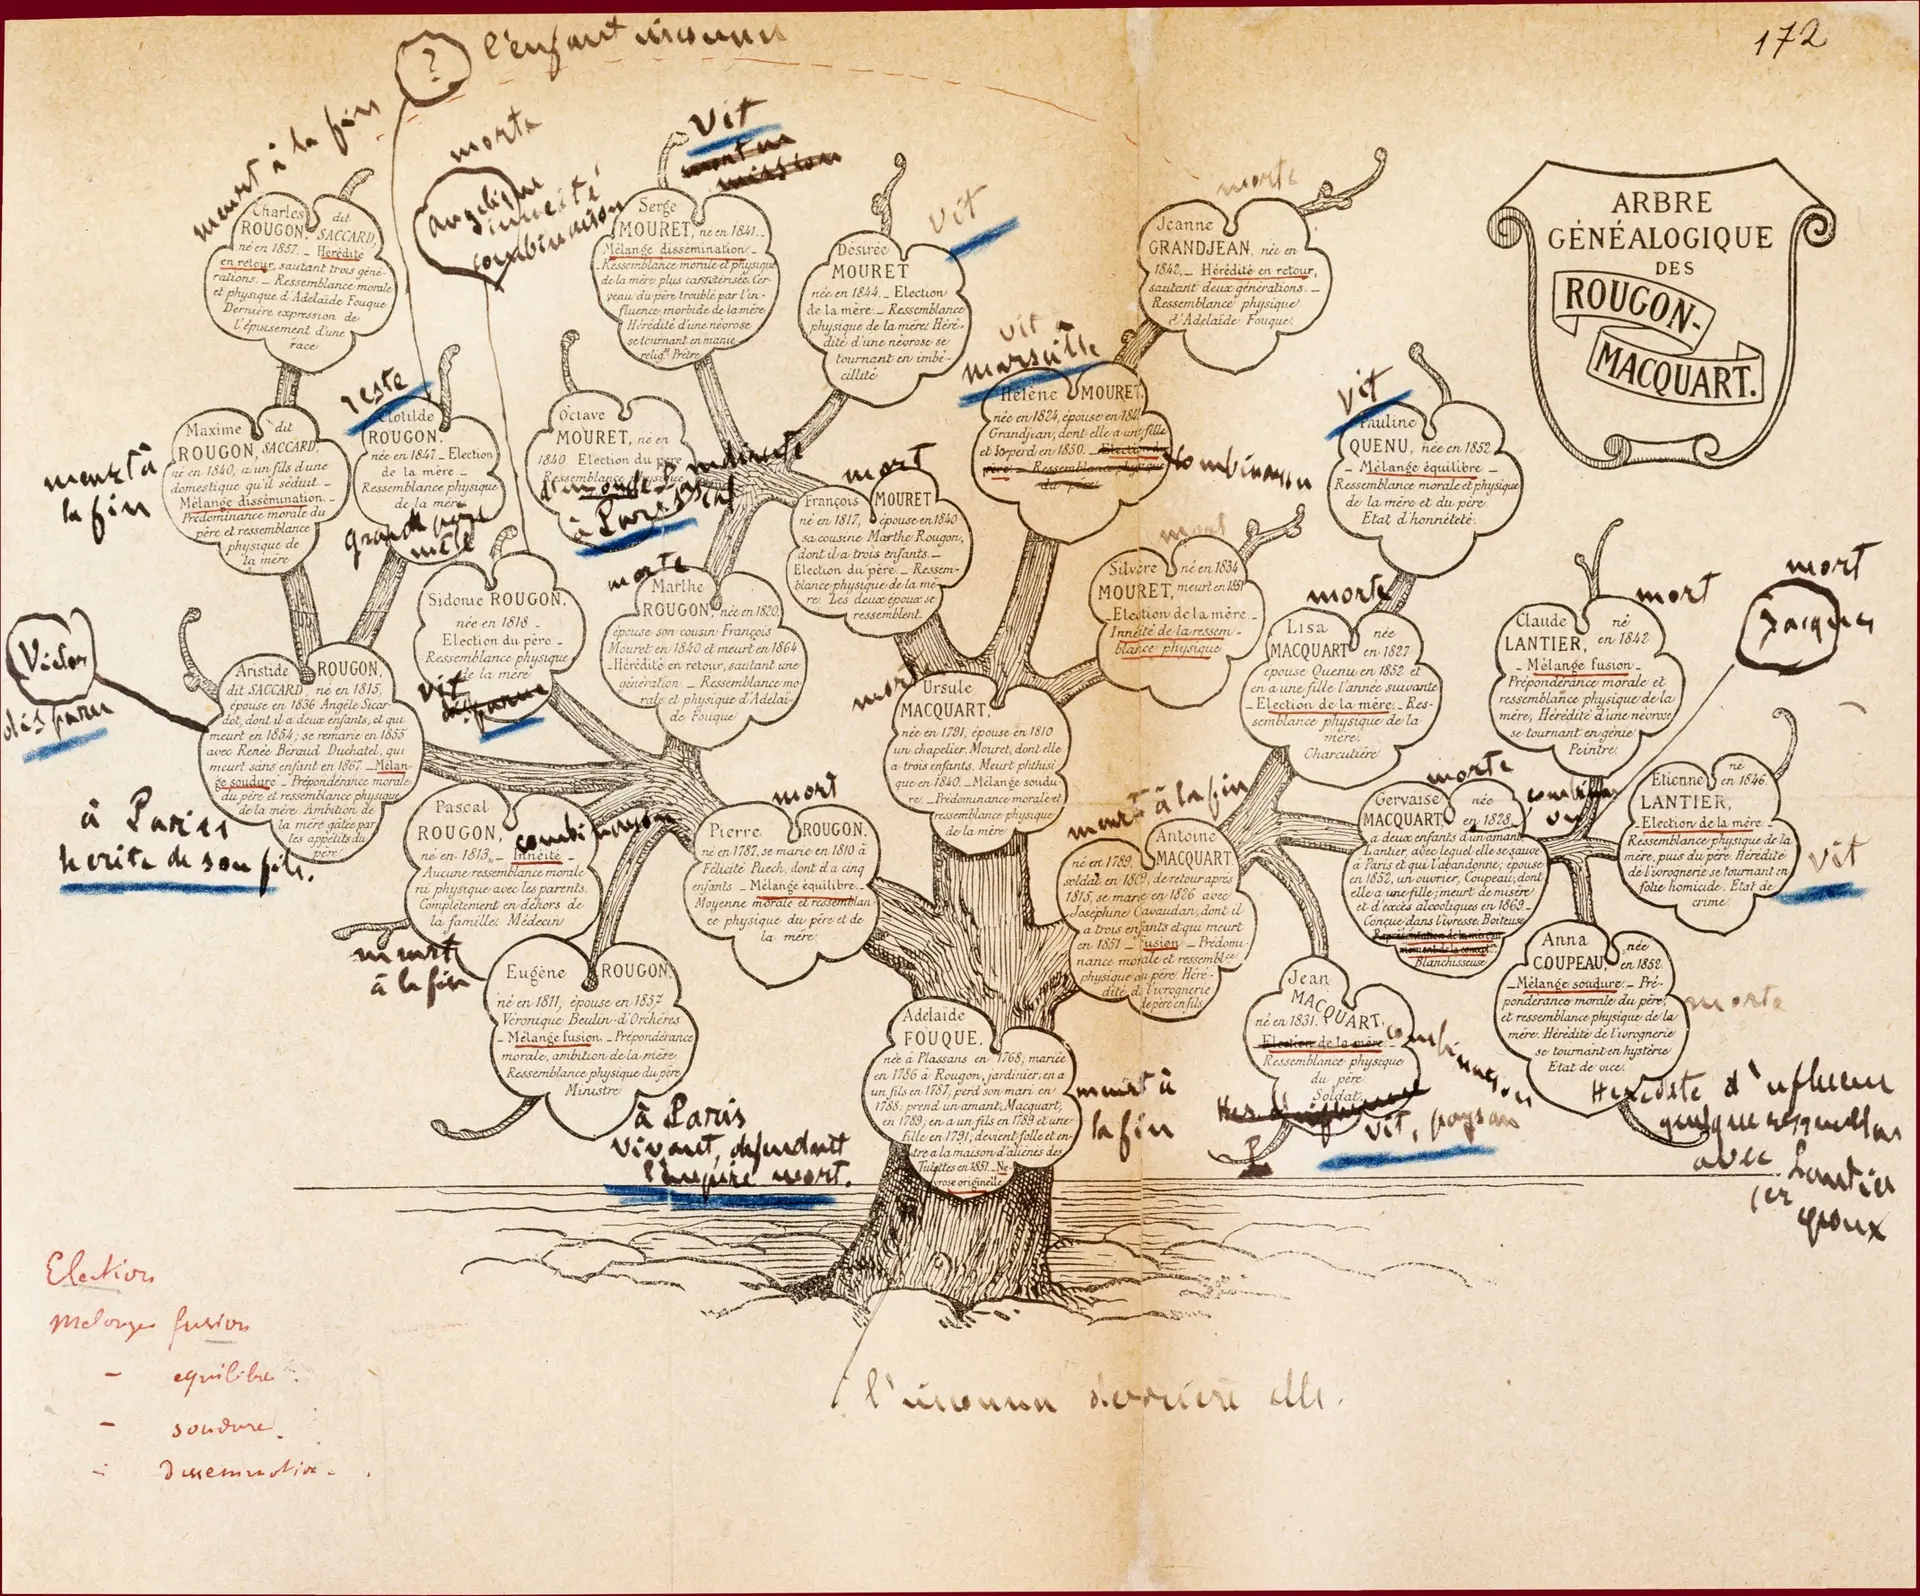 172
? l'enfant inconnu
ARBRE
GÉNÉALOGIQUE
DES
ROUGON-
MACQUART.
meurt à la fin
Charles dit
ROUGON, SACCARD,
né en 1857. _ Hérédité
en retour, sautant trois géné-
rations. _ Ressemblance morale
et physique d'Adélaïde Fouque.
Dernière expression de
l'épuisement d'une
race
morte
angélique
innéité
combinaison
Vit
mort en
mission
Serge
MOURET, né en 1841._
Mélange dissémination _
_Ressemblance morale et physique
de la mère plus caractérisée. Cer-
veau du père troublé par l'in-
fluence morbide de la mère
Hérédité d'une névrose
se tournant en manie
religse. Prêtre
vit
Désirée
MOURET
née en 1844. _ Election
de la mère. _ Ressemblance
physique de la mère. Héré-
dité d'une névrose se
tournant en imbé-
cillité
morte
Jeanne
GRANDJEAN, née en
1842. _ Hérédité en retour,
sautant deux générations. _
Ressemblance physique
d'Adélaïde Fouque.
meurt à
la fin
Maxime dit
ROUGON, SACCARD,
né en 1840, a un fils d'une
domestique qu'il séduit. _
Mélange dissémination. _
Prédominance morale du
père et ressemblance
physique de
la mère
reste
Clotilde
ROUGON.
née en 1847._ Election
de la mère. _
Ressemblance physique
de la mère
grand père
mêlé
Octave
MOURET, né en
1840 Election du père
Ressemblance physique
indirecte
à Paris
vit
marseille
Hélène MOURET,
née en 1824, épouse en 1841
Grandjean, dont elle a une fille
et le perd en 1850. _ Election du
père. _ Ressemblance physique
du père
combinaison
vit
Pauline
QUENU, née en 1852
_ Mélange équilibre _
Ressemblance morale et physique
de la mère et du père
Etat d'honnêteté.
mort
François MOURET
né en 1817, épouse en 1840
sa cousine Marthe Rougon,
dont il a trois enfants. _
Election du père. _ Ressem-
blance physique de la mè-
re. Les deux époux se
ressemblent.
Sidonie ROUGON,
née en 1818 _
Election du père _
Ressemblance physique
de la mère
vit
disparue
morte
Marthe
ROUGON, née en 1820,
épouse son cousin François
Mouret en 1840 et meurt en 1864
_ Hérédité en retour, sautant une
génération. _ Ressemblance mo-
rale et physique d'Adélaï-
de Fouque
mort
Silvère né en 1834
MOURET, meurt en 1851
_ Election de la mère. _
Innéité de la ressem-
blance physique
morte
Lisa née
MACQUART en 1827
épouse Quenu en 1852 et
en a une fille l'année suivante
_ Election de la mère. _ Res-
semblance physique de la
mère.
Charcutière
mort
Claude né
LANTIER, en 1842
_ Mélange fusion _
Prépondérance morale et
ressemblance physique de la
mère, Hérédité d'une névrose
se tournant en génie
Peintre
mort
Jacques
Victor
disparu
Aristide ROUGON,
dit SACCARD, né en 1815,
épouse en 1836 Angèle Sicar-
dot, dont il a deux enfants, et qui
meurt en 1854; se remarie en 1855
avec Renée Béraud Duchatel, qui
meurt sans enfant en 1867. _ Mélan-
ge soudure _ Prépondérance morale
du père et ressemblance physique
de la mère. Ambition de
la mère gâtée par
les appétits du
père
à Paris
hérite de son fils.
mort
Ursule
MACQUART,
née en 1791, épouse en 1810
un chapelier. Mouret, dont elle
a trois enfants. Meurt phthisi-
que en 1840. _ Mélange soudu-
re. _ Prédominance morale et
ressemblance physique
de la mère
Pascal
ROUGON,
né en 1813. _ Innéité _
Aucune ressemblance morale
ni physique avec les parents.
Complètement en dehors de
la famille. Médecin
combinaison
meurt
à la fin
mort
Pierre ROUGON.
né en 1787, se marie en 1810 à
Félicité Puech, dont il a cinq
enfants _ Mélange équilibre. _
Moyenne morale et ressemblan-
ce physique du père et de
la mère.
meurt à la fin
Antoine
MACQUART
né en 1789,
soldat en 1809, de retour après
1815, se marie en 1826 avec
Joséphine Gavaudan, dont il
a trois enfants et qui meurt
en 1851 _ Fusion _ Prédomi-
nance morale et ressemblce
physique du père. Héré-
dité d. l'ivrognerie
de père en fils
morte
Gervaise née
MACQUART en 1828,
a deux enfants d'un amant
Lantier, avec lequel elle se sauve
à Paris et qui l'abandonne; épouse
en 1852, un ouvrier, Coupeau, dont
elle a une fille; meurt de misère
et d'excès alcooliques en 1869 _
Conçue dans l'ivresse. Boiteuse
Représentation de la mère au
moment de la concepton
Blanchisseuse
Etienne né
LANTIER, en 1846.
_ Election de la mère. _
Ressemblance physique de la
mère, puis du père. Hérédité
de l'ivrognerie se tournant en
folie homicide. Etat de
crime.
vit
Eugène ROUGON,
né en 1811, épouse en 1857
Véronique Beulin-d'Orchères
_ Mélange fusion. _ Prépondérance
morale, ambition de la mère.
Ressemblance physique du père
Ministre
à Paris
vivant, défendant
l'empire mort.
Adélaïde
FOUQUE,
née à Plassans en 1768, mariée
en 1786 à Rougon, jardinier, en a
un fils en 1787, perd son mari en
1788; prend un amant, Macquart,
en 1789; en a un fils en 1789 et une
fille en 1791; devient folle et en-
tre à la maison d'aliénés des
Tulettes en 1851. _ Né-
vrose originelle
meurt à
la fin
Jean
MACQUART,
né en 1831. _
Election de la mère. _
Ressemblance physique
du père
Soldat.
combinaison
vit, paysan
Anna née
COUPEAU, en 1852.
_ Mélange soudure. _ Pré-
pondérance morale du père,
et ressemblance physique de la
mère. Hérédité de l'ivrognerie
se tournant en hystérie
Etat de vice.
morte
Hérédité d'influence
quelque ressemblan
avec Lantier
1er
époux
Election
Mélange fusion
- equilibre
- soudure.
- Dissemination.
l'inconnu derrière elle.